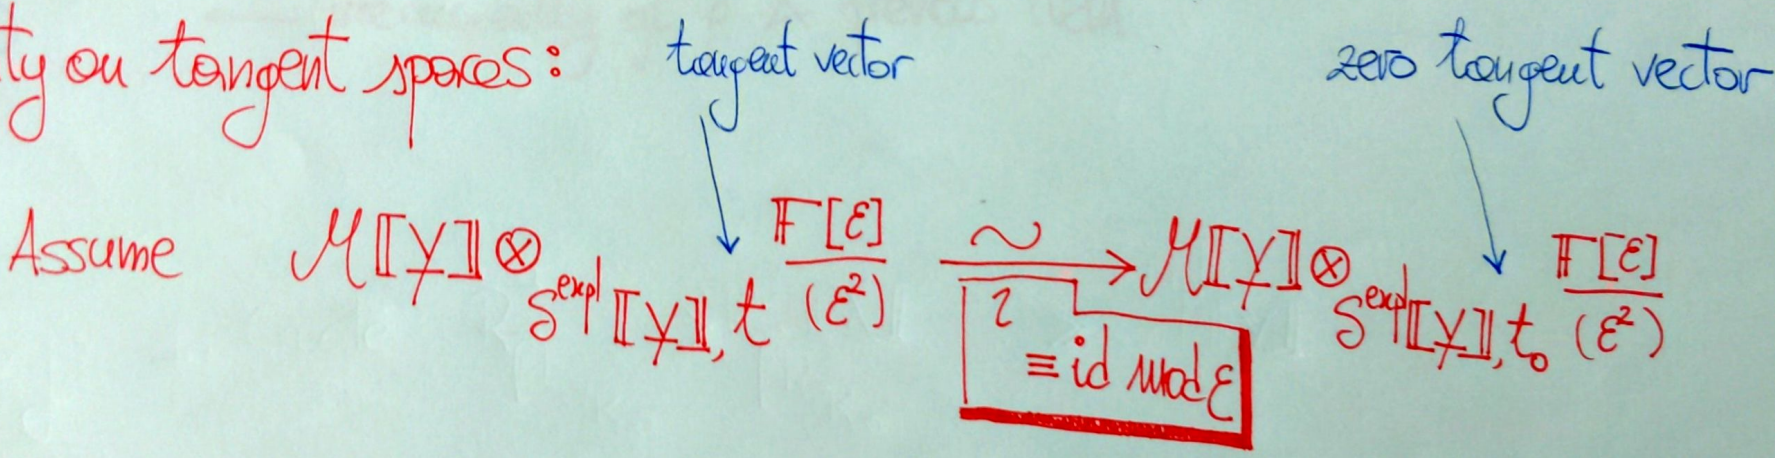 ty on tangent spaces: tangent vector zero tangent vector
Assume M[[Y]] ⊗_{S^{expl}[[Y]], t} F[ε]/(ε²) ⥲ M[[Y]] ⊗_{S^{expl}[[Y]], t₀} F[ε]/(ε²)
ι ≡ id mod ε